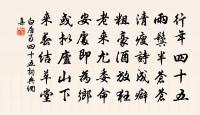 行年四十五
兩鬢半蒼蒼
清瘦詩成癖
粗豪酒放狂
老來尤委命
安處即為鄉
或擬廬山下
來春結草堂
白居易四十五詞典網
集